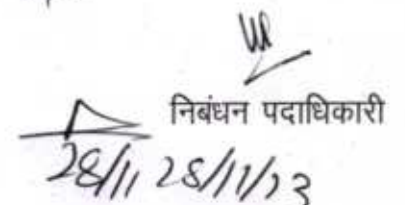 निबंधन पदाधिकारी
28/11 28/11/23